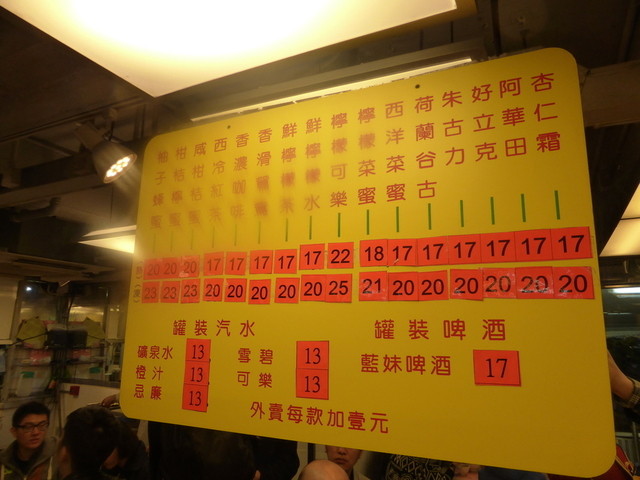 柚子蜂蜜
柑桔檸蜜
咸柑桔蜜
西冷紅茶
香濃咖啡
香滑
鮮檸檬茶
鮮檸檬水
檸檬可樂
檸檬菜蜜
西洋菜蜜
荷蘭谷古
朱古力
好立克
阿華田
杏仁霜
熱 20 20 20 17 17 17 17 17 22 18 17 17 17 17 17 17
凍 23 23 23 20 20 20 20 20 25 21 20 20 20 20 20 20
罐裝汽水 罐裝啤酒
礦泉水 13 雪碧 13 藍妹啤酒 17
橙汁 13 可樂 13
忌廉 13
外賣每款加壹元